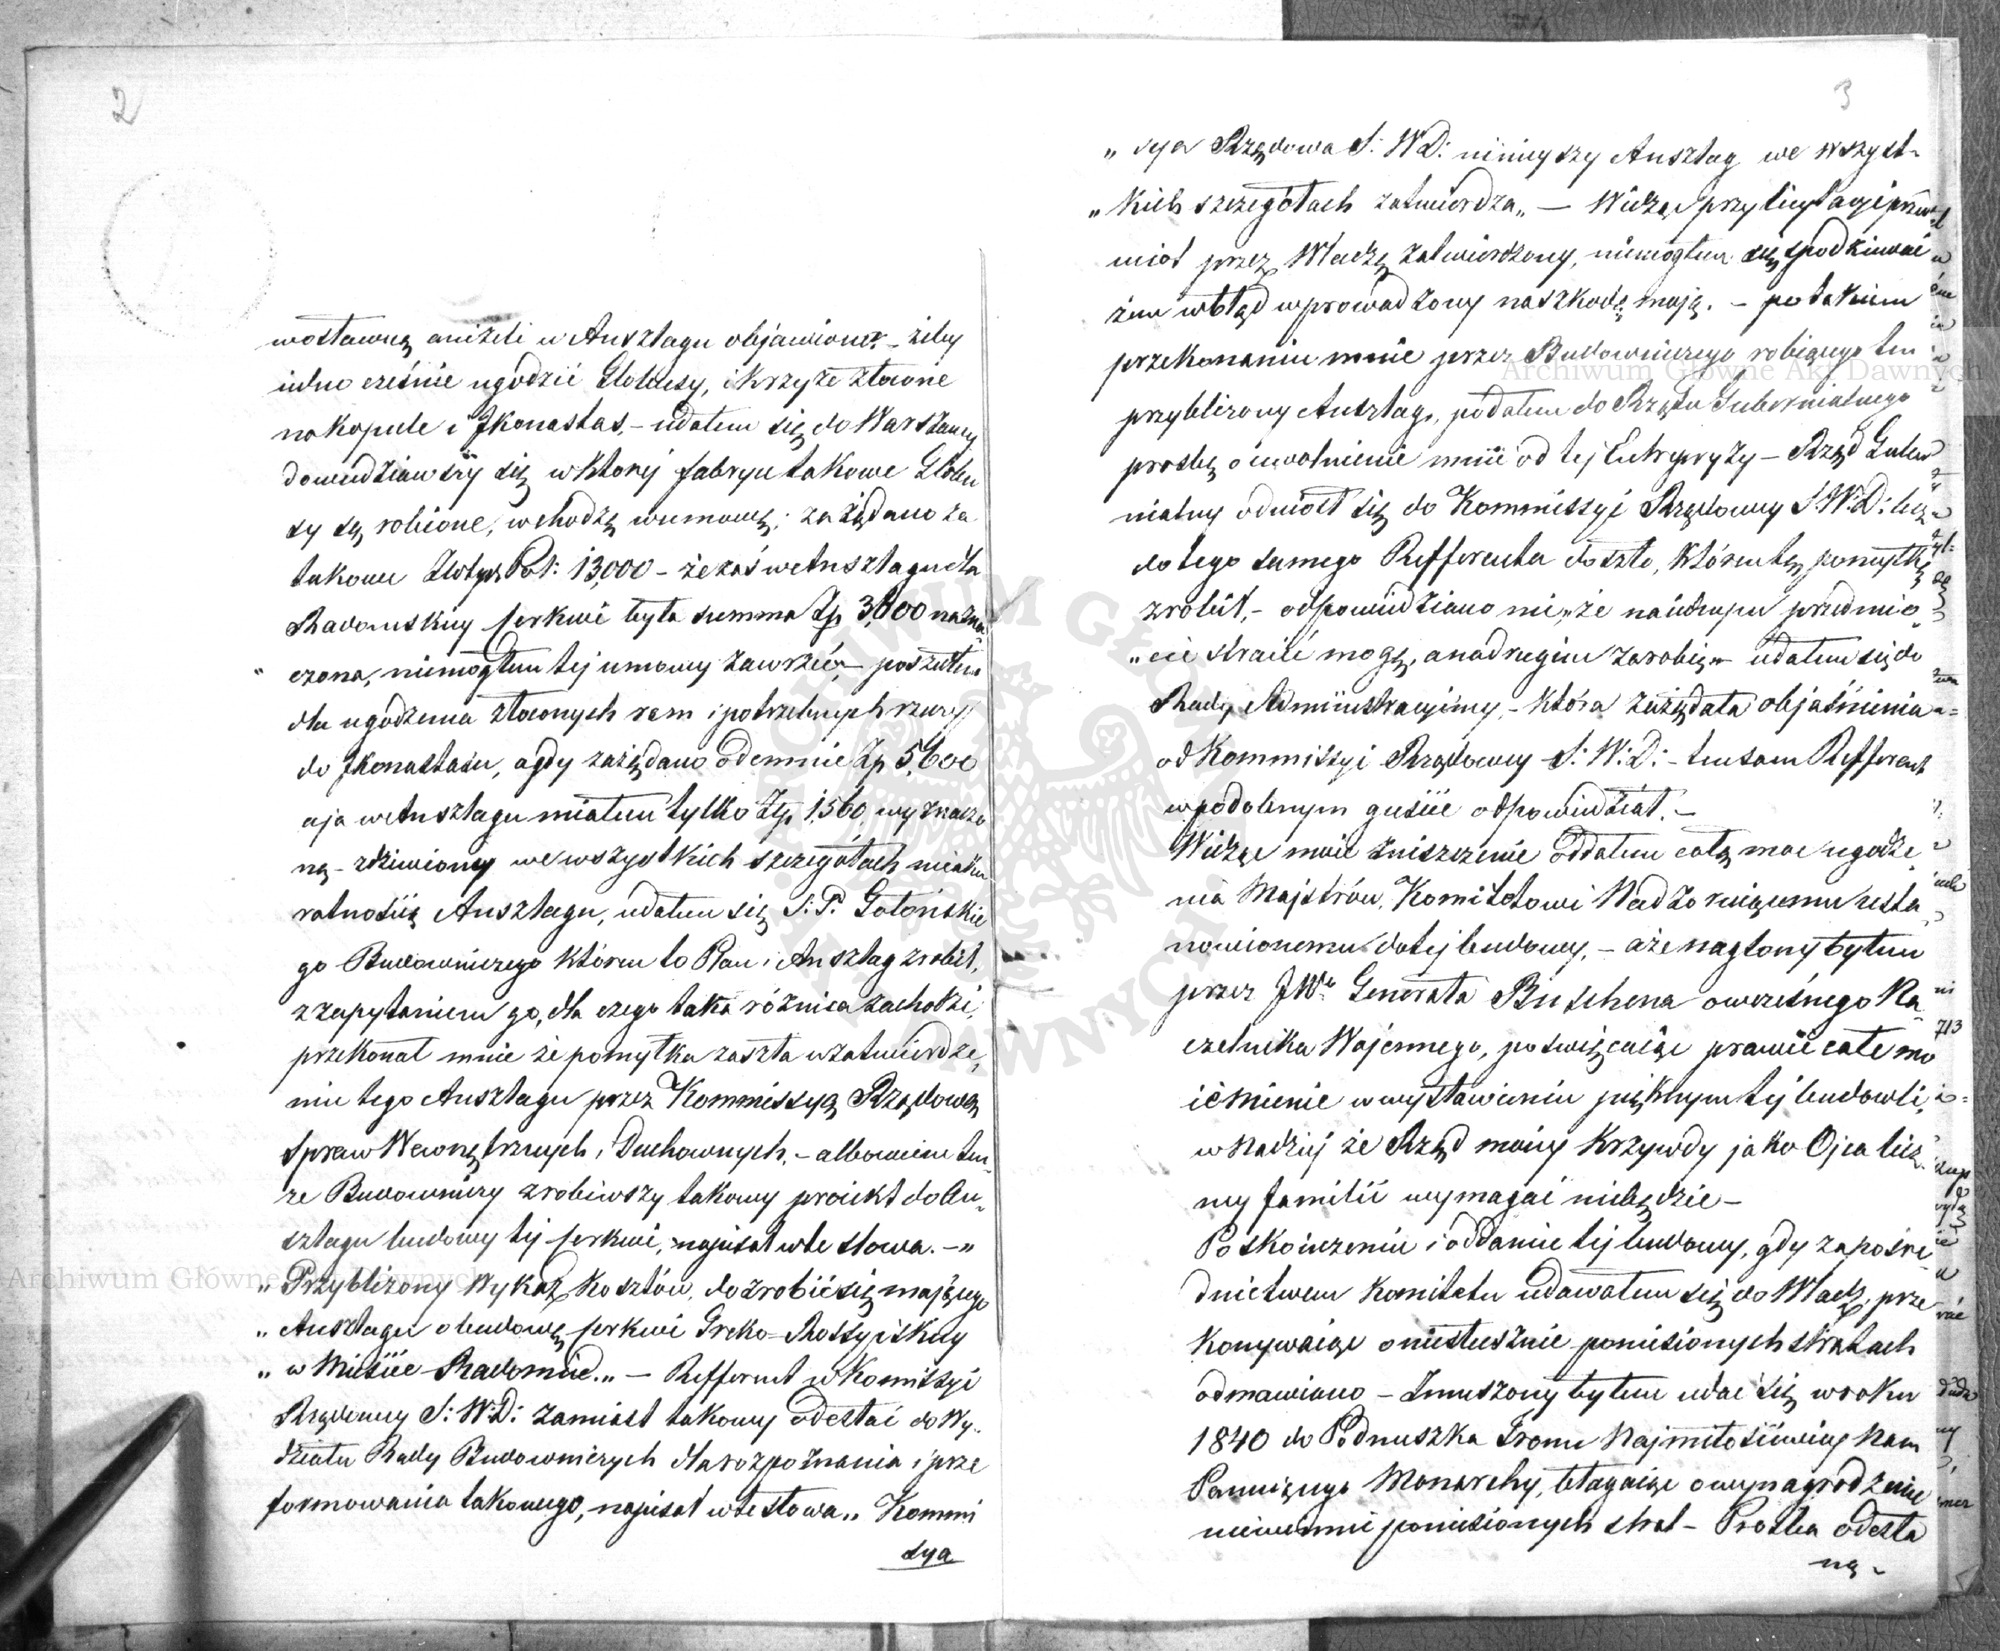 2
wostawną aniżeli w Ansztagu objawiono. – żeby
iuko cześnie ugodzić Globusy, i krzyże złocone
na kopule i Jkonastas, – udałem się do Warszawy
dowiedziawszy się w którey fabryce takowe Globu
sy są robione, wchodzę w umowę; zażądano za
takowe Złotych Pol: 13,000 – że zaś w Ansztagu dla
Radomskiey Cerkwi była summa Zp 3,000 nazna
czona, niemogłem tej umowy zawrzeć, – poszedłem
dla ugodzenia złoconych ram i potrzebnych rzeczy
do Jkonastasu, a gdy zażądano odemnie Zp 5,600
a ja w Ansztagu miałem tylko Zp 1,560, wyznaczo
ną – zdziwiony we wszystkich szczegółach nieaku
ratnością Ansztagu, udałem się S: P. Gołońskie
go Budowniczego którem to Plan i Ansztag zrobił,
z zapytaniem go, dla czego taka różnica zachodzi;
przekonał mnie że pomyłka zaszła w zatwierdze,
niu tego Ansztagu przez Kommissyą Rządową
Spraw Wewnętrznych i Duchownych, – albowiem ten
że Budowniczy zrobiwszy takowy proiekt do An„
sztagu budowy tej Cerkwi, napisał w te słowa. – „
„ Przybliżony Wykaz Kosztów, do zrobić się mającego
„ Ansztagu o budowę Cerkwi Greko-Rossyiskiey
„ w Mieście Radomiu. „ – Refferent w Komissyi
Rządowey S: W: D: zamiast takowy odesłać do Wy„
działu Rady Budowniczych dla rozpoznania i prze
formowania takowego, napisał w te słowa „ Kommi
sya
3
„ sya Rządowa S: W D: niniejszy Ansztag we wszyst„
„ kich szczegółach zatwierdza „ – Widząc przy licytacyi przed
miot przez Władzę zatwierdzony, niemogłem się spodziewać
żem w błąd wprowadzony na szkodę moją. – po takiem
przekonaniu mnie przez Budowniczego robiącego ten
przybliżony Ansztag, podałem do Rządu Gubernialnego
prośbę o uwolnienie mnie od tej Entrepryży – Rząd Guber
nialny odniosł się do Kommissyi Rządowey S: W: D: lecz
do tego samego Refferenta doszło, który tę pomyłkę
zrobił, – odpowiedziano mi „ że na iednym przedmio„
„ cie stracić mogę, a na drugim zarobię „ – udałem się do
Rady Administracyjney, – która zażądała objaśnienia
od Kommissyi Rządowey S: W: D: – ten sam Refferent
w podobnym guście odpowiedział. –
Widząc moie zniszczenie oddałem całą moc ugodze
nia Majstrów, Komitetowi Nadzorującemu usta„
nowionemu do tej budowy, – a że naglony byłem
przez JWo Generała Buschena ówcześnego Na„
czelnika Wojennego, poświęcaiąc prawie całe mo
ie mienie w wystawieniu pięknym tej budowli,
w nadziei że Rząd moiey krzywdy jako Ojca licz
ney familii wymagać niebędzie –
Po skończeniu i oddaniu tej budowy, gdy za pośre
dnictwem Komitetu udawałem się do Władz, prze
konywaiąc o niesłusznie poniesionych stratach
odmawiano – zmuszony byłem udać się w roku
1840 do Podnuszka Tronu Najmiłościwiej Nam
Panuiącego Monarchy, błagaiąc o wynagrodzenie
niewinnie poniesionych strat – Prośba odesła
ną –
713
Archiwum Główne Akt Dawnych
Archiwum Główne Akt Dawnych
ARCHIWUM GŁÓWNE AKT DAWNYCH